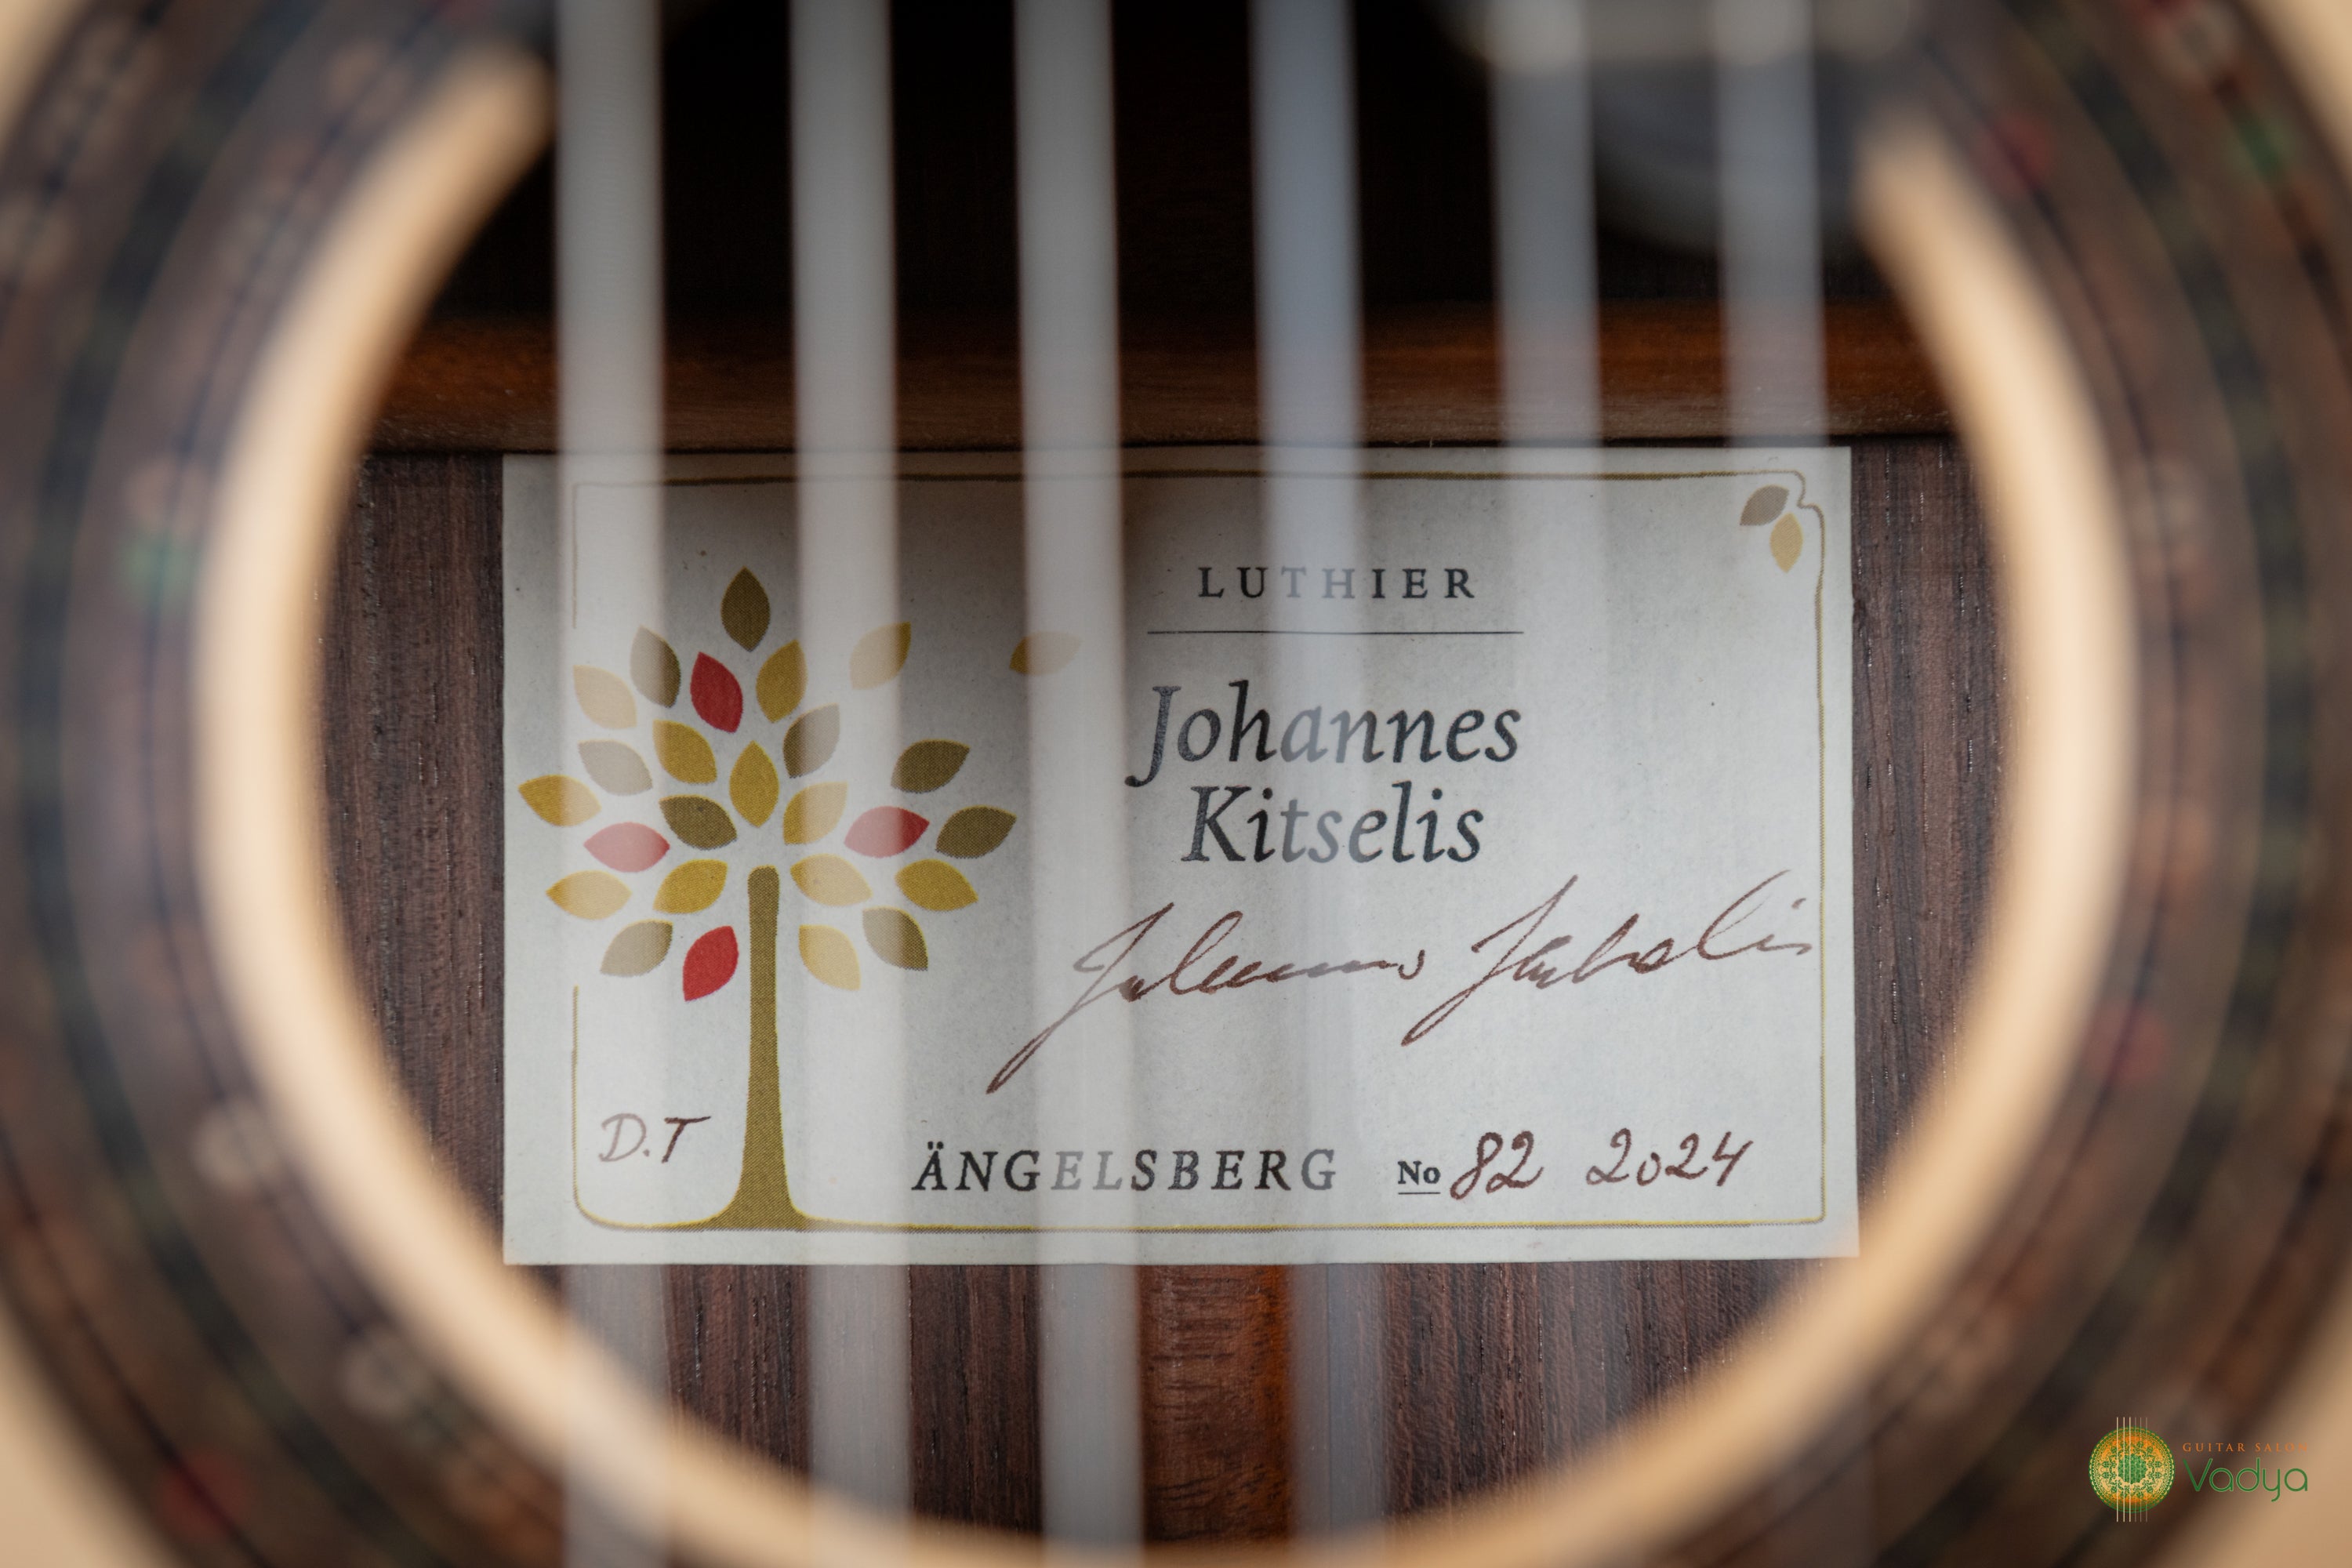 LUTHIER
Johannes
Kitselis
Johannes Kitselis
D.T
ÄNGELSBERG No 82 2024
GUITAR SALON
Vadya